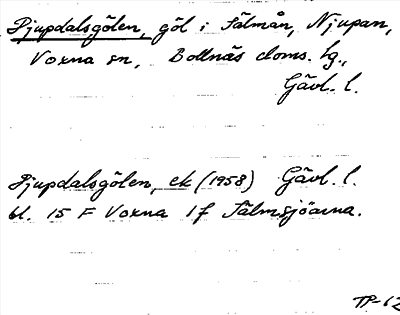 Djupdalsgölen, göl i Fälmån, Njupan,
Voxna sn, Bollnäs doms. hg.,
Gävl. l.
Djupdalsgölen, ek (1958) Gävl. l.
bl. 15 F Voxna 1f Fälmsjöarna.
TP-62